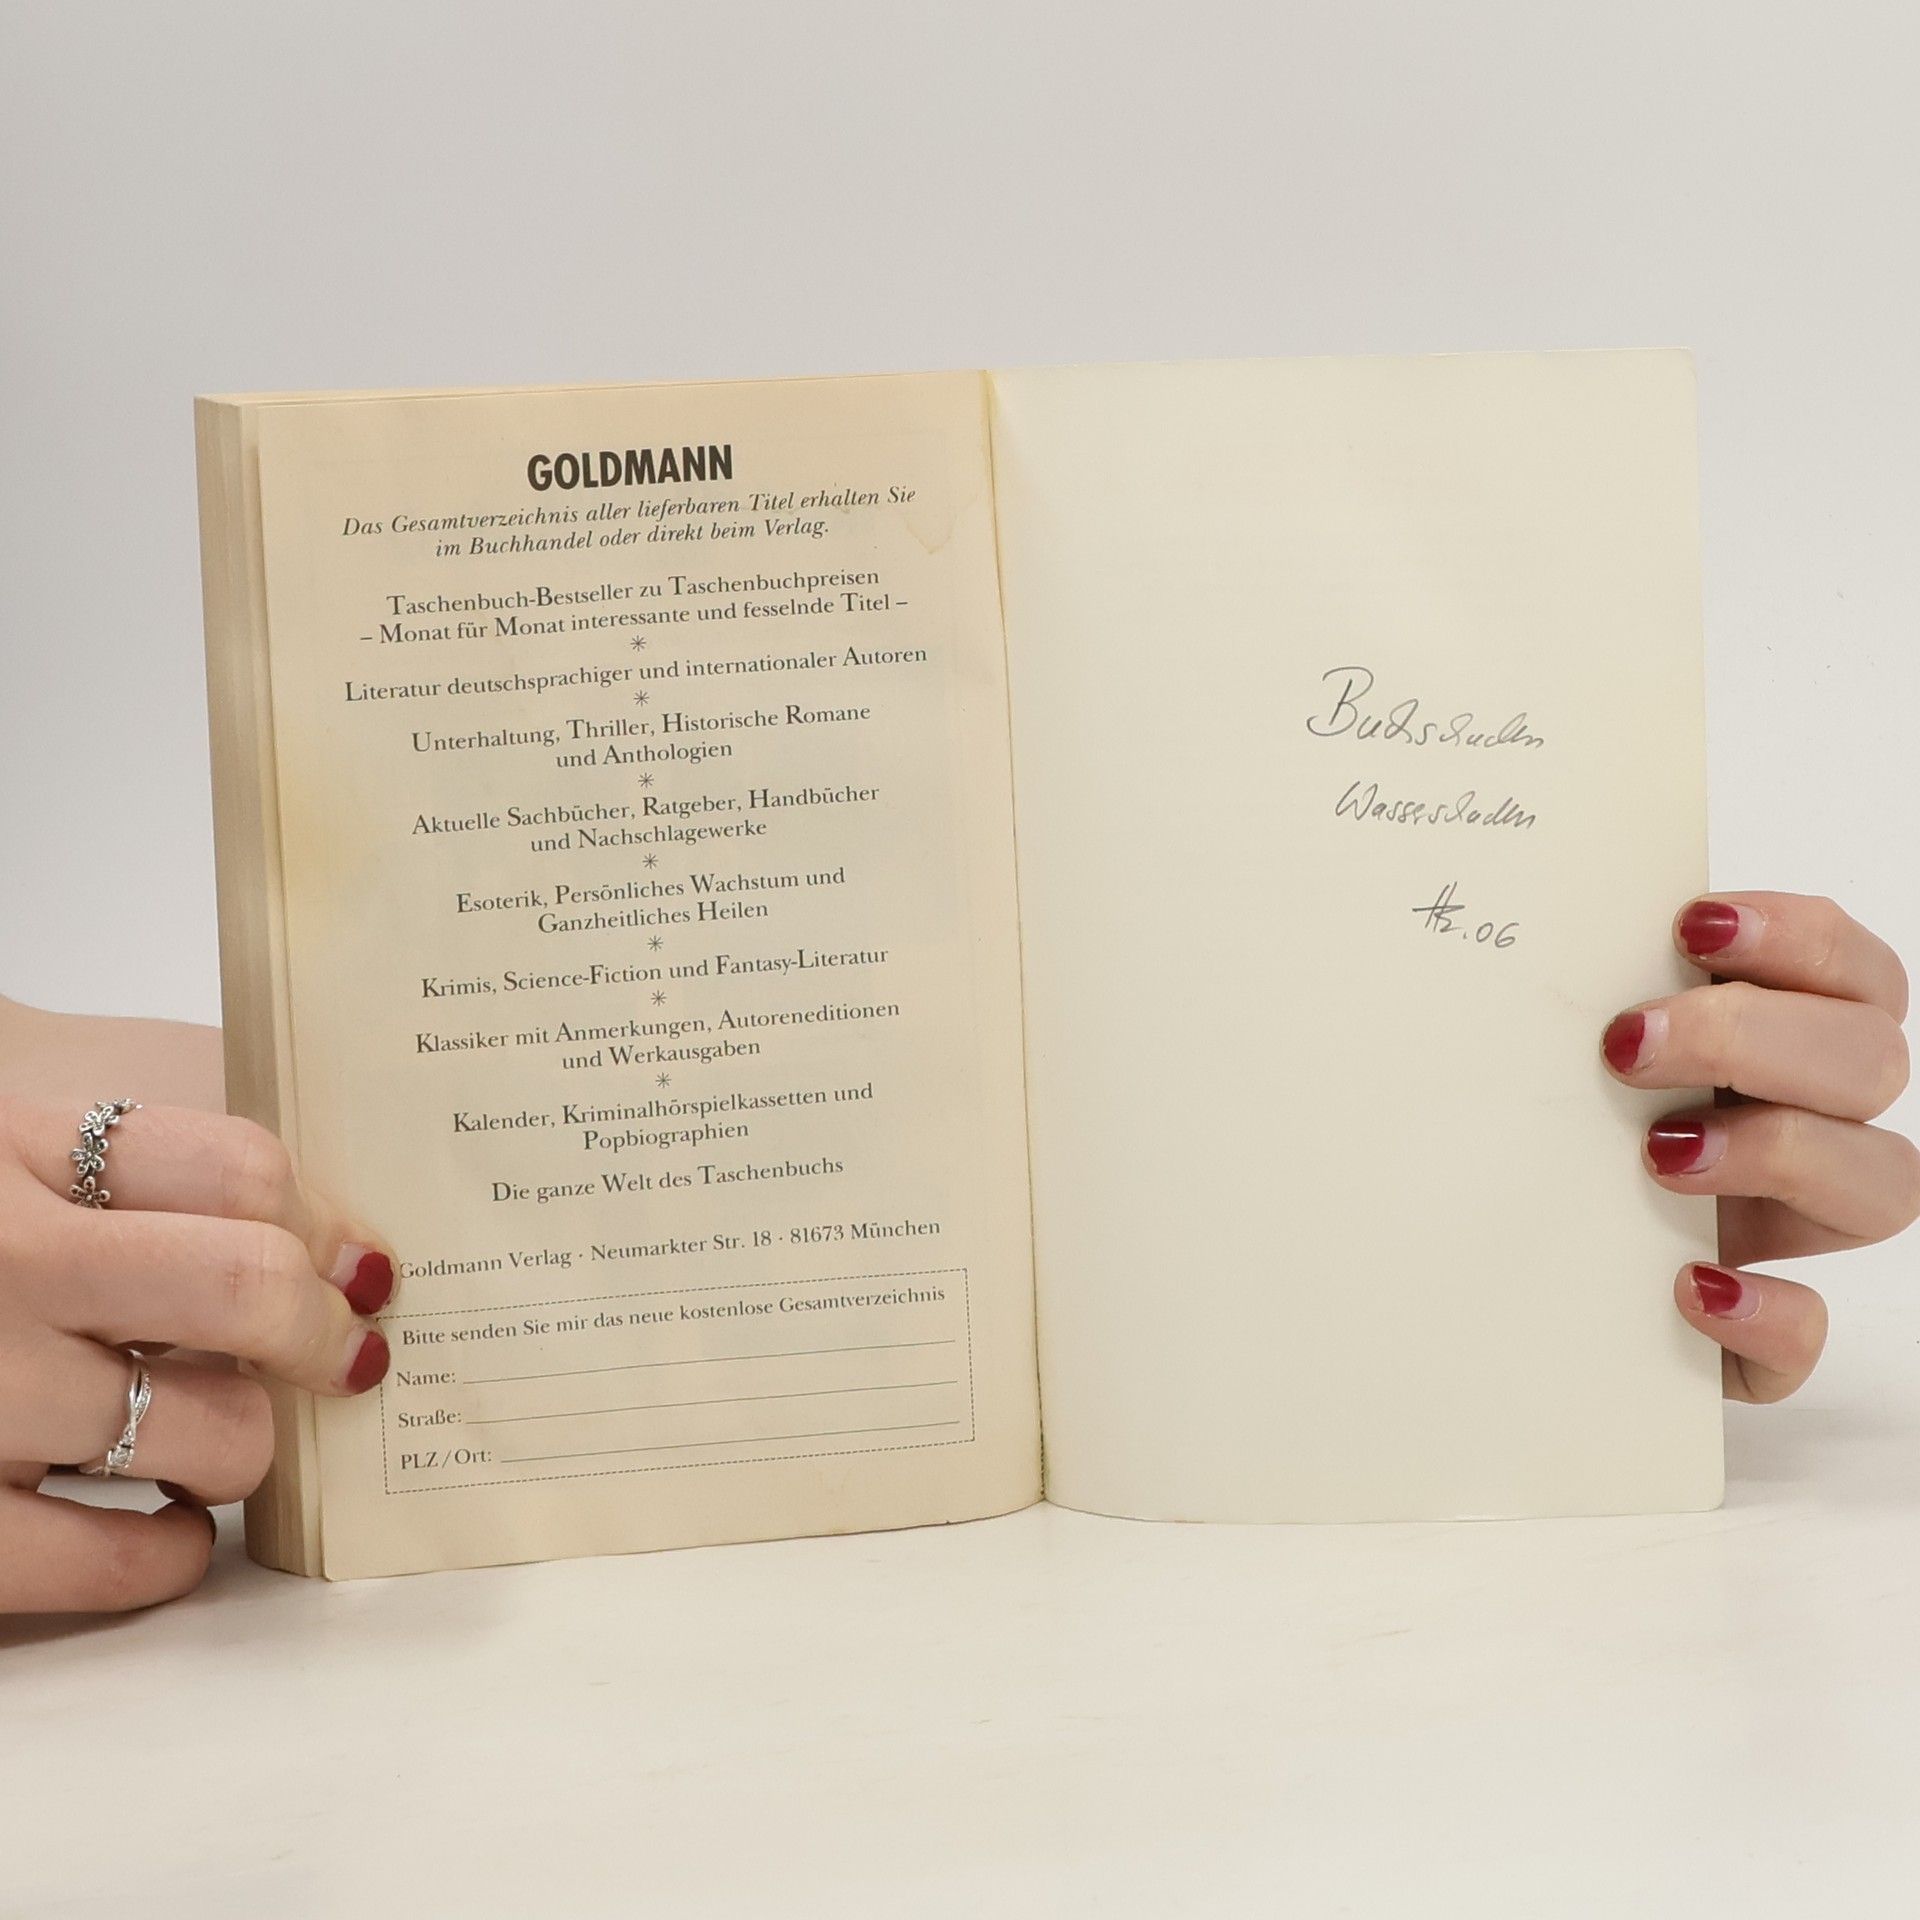 GOLDMANN
Das Gesamtverzeichnis aller lieferbaren Titel erhalten Sie
im Buchhandel oder direkt beim Verlag.
Taschenbuch-Bestseller zu Taschenbuchpreisen
– Monat für Monat interessante und fesselnde Titel –
✳
Literatur deutschsprachiger und internationaler Autoren
✳
Unterhaltung, Thriller, Historische Romane
und Anthologien
✳
Aktuelle Sachbücher, Ratgeber, Handbücher
und Nachschlagewerke
✳
Esoterik, Persönliches Wachstum und
Ganzheitliches Heilen
✳
Krimis, Science-Fiction und Fantasy-Literatur
✳
Klassiker mit Anmerkungen, Autoreneditionen
und Werkausgaben
✳
Kalender, Kriminalhörspielkassetten und
Popbiographien
Die ganze Welt des Taschenbuchs
Goldmann Verlag · Neumarkter Str. 18 · 81673 München
Bitte senden Sie mir das neue kostenlose Gesamtverzeichnis
Name:
Straße:
PLZ/Ort:
Buchschaden
Wasserschaden
.06